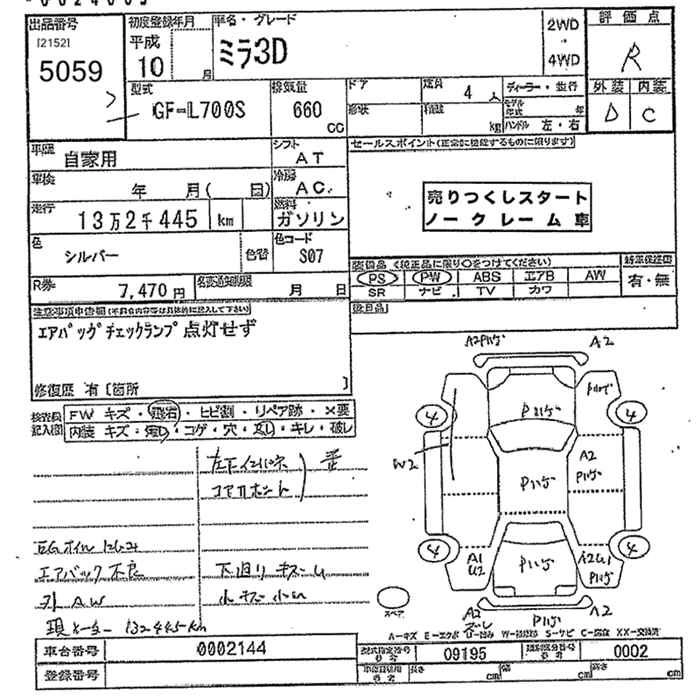 出品番号
[2152]
5059
初度登録年月
平成
10
月
車名・グレード
ミラ3D
2WD
4WD
評価点
R
外装 内装
D C
型式
GF-L700S
排気量
660
CC
ドア
形状
定員
4 人
積載
kg
ディーラー・並行
モデル年式 年
ハンドル 左・右
車歴
自家用
シフト
AT
車検
年 月( 日)
冷房
AC
走行
13万2千445 km
燃料
ガソリン
色
シルバー
色替
色コード
S07
R券
7,470 円
名変通知期限
月 日
セールスポイント(正常に機能するものに限ります)
売りつくしスタート
ノークレーム車
装備品 (純正品に限り○をつけてください)
PS PW ABS エアB AW
SR ナビ TV カワ
新車保証書
有・無
後日品
注意事項申告欄
エアバッグチェックランプ点灯せず
修復歴 有 [箇所 ]
検査員記入欄
FW キズ・飛石・ヒビ割・リペア跡・×要
内装 キズ・無し・コゲ・穴・返し・キレ・破し
左下インパネ
エアバック不良
下廻りキズ
外AW
現メーター 132445km
A2 Pハゲ A2
Pハゲ
Pハゲ
4 4
W2
A2
Pハゲ
Pハゲ
4 4
A1
U2
Pハゲ
A2U1
Pハゲ
スペア
A2 Pハゲ A2
A-キズ E-エクボ U-凹み W-補修跡 S-サビ C-腐食 XX-交換済
車台番号
0002144
型式指定番号
09195
類別区分番号
0002
登録番号
長さ cm 幅 cm 高さ cm